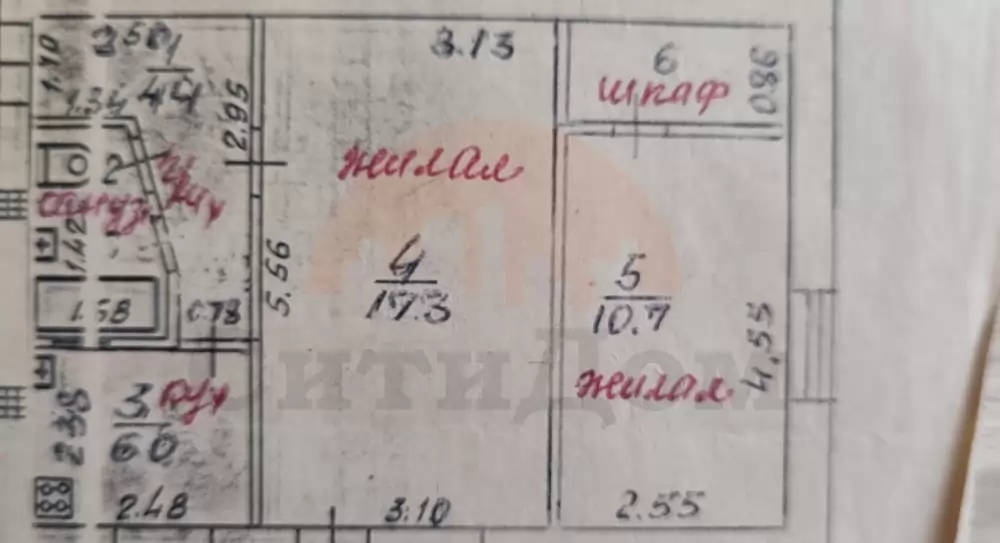 2.50
1
4.4
1.10
1.34
2.95
3.13
6
шкаф
0.86
2
жилая
1.42
1.58
0.78
5.56
4
17.3
5
10.7
4.55
СитиДом
жилая
3
кух
6.0
2.38
2.48
3.10
2.55